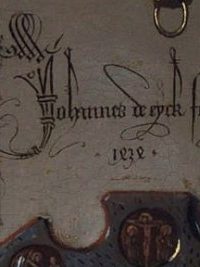 Johannes de eyck f
.1434.